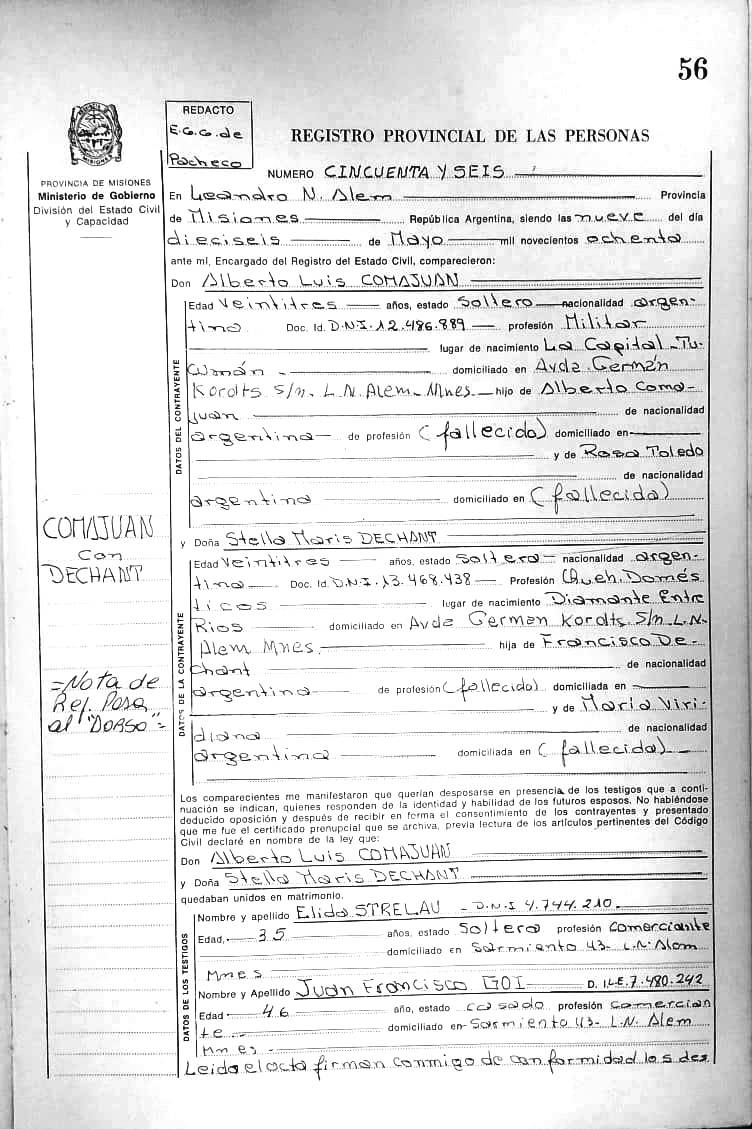 56
REDACTO
E.G.G. de
Pacheco
REGISTRO PROVINCIAL DE LAS PERSONAS
PROVINCIA DE MISIONES
Ministerio de Gobierno
División del Estado Civil
y Capacidad
NUMERO CINCUENTA Y SEIS
En Leandro N. Alem Provincia
de Misiones República Argentina, siendo las nueve del día
dieciseis de Mayo mil novecientos ochenta
ante mí, Encargado del Registro del Estado Civil, comparecieron:
Don Alberto Luis COMAJUAN
DATOS DEL CONTRAYENTE
Edad Veintitres años, estado Soltero nacionalidad argen-
tina Doc. Id. D.N.I. 12.486.889 profesión Militar
lugar de nacimiento La Capital - Tu-
cumán - domiciliado en Avda Germán
Kordts S/n. L.N. Alem - Mnes. hijo de Alberto Coma-
juan de nacionalidad
argentina de profesión (fallecido) domiciliado en
y de Rosa Toledo
de nacionalidad
argentina domiciliado en (fallecida)
COMAJUAN
Con
DECHANT
=Nota de
Ref. Pasa
al "DORSO"=
y Doña Stella Maris DECHANT
DATOS DE LA CONTRAYENTE
Edad Veintitres años, estado Soltera nacionalidad argen-
tina Doc. Id. D.N.I. 13.468.438 Profesión Queh. Domés
ticos lugar de nacimiento Diamante Entre
Rios domiciliado en Avda German Kordts. S/n L.N.
Alem Mnes. hija de Francisco De-
chant de nacionalidad
argentina de profesión (fallecido) domiciliada en
y de Maria Viri-
diana de nacionalidad
argentina domiciliada en (fallecida)
Los comparecientes me manifestaron que querían desposarse en presencia de los testigos que a conti-
nuación se indican, quienes responden de la identidad y habilidad de los futuros esposos. No habiéndose
deducido oposición y después de recibir en forma el consentimiento de los contrayentes y presentado
que me fue el certificado prenupcial que se archiva, previa lectura de los artículos pertinentes del Código
Civil declaré en nombre de la ley que:
Don Alberto Luis COMAJUAN
y Doña Stella Maris DECHANT
quedaban unidos en matrimonio.
DATOS DE LOS TESTIGOS
Nombre y apellido Elida STRELAU - D.N.I 4.744.210.
Edad, 35 años, estado Soltera profesión Comerciante
domiciliado en Sarmiento 43- L.N. Alem
Mnes
Nombre y Apellido Juan Francisco GOI D. I. L.E. 7.480.242
Edad 46 año, estado casado profesión comercian
te - domiciliado en Sarmiento 43- L.N. Alem
Mnes
Leida el acta firman conmigo de conformidad los des